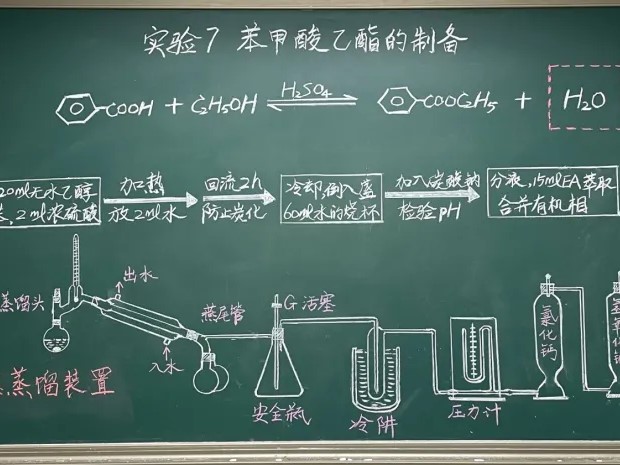 实验7 苯甲酸乙酯的制备
COOH + C2H5OH H2SO4 COOC2H5 + H2O
20ml无水乙醇
2ml浓硫酸
加热
放2ml水
回流2h
防止炭化
冷却,倒入盛
60ml水的烧杯
加入碳酸钠
检验pH
分液,15mlEA萃取
合并有机相
蒸馏头
出水
入水
燕尾管
G活塞
安全瓶
冷阱
压力计
氯化钙
蒸馏装置